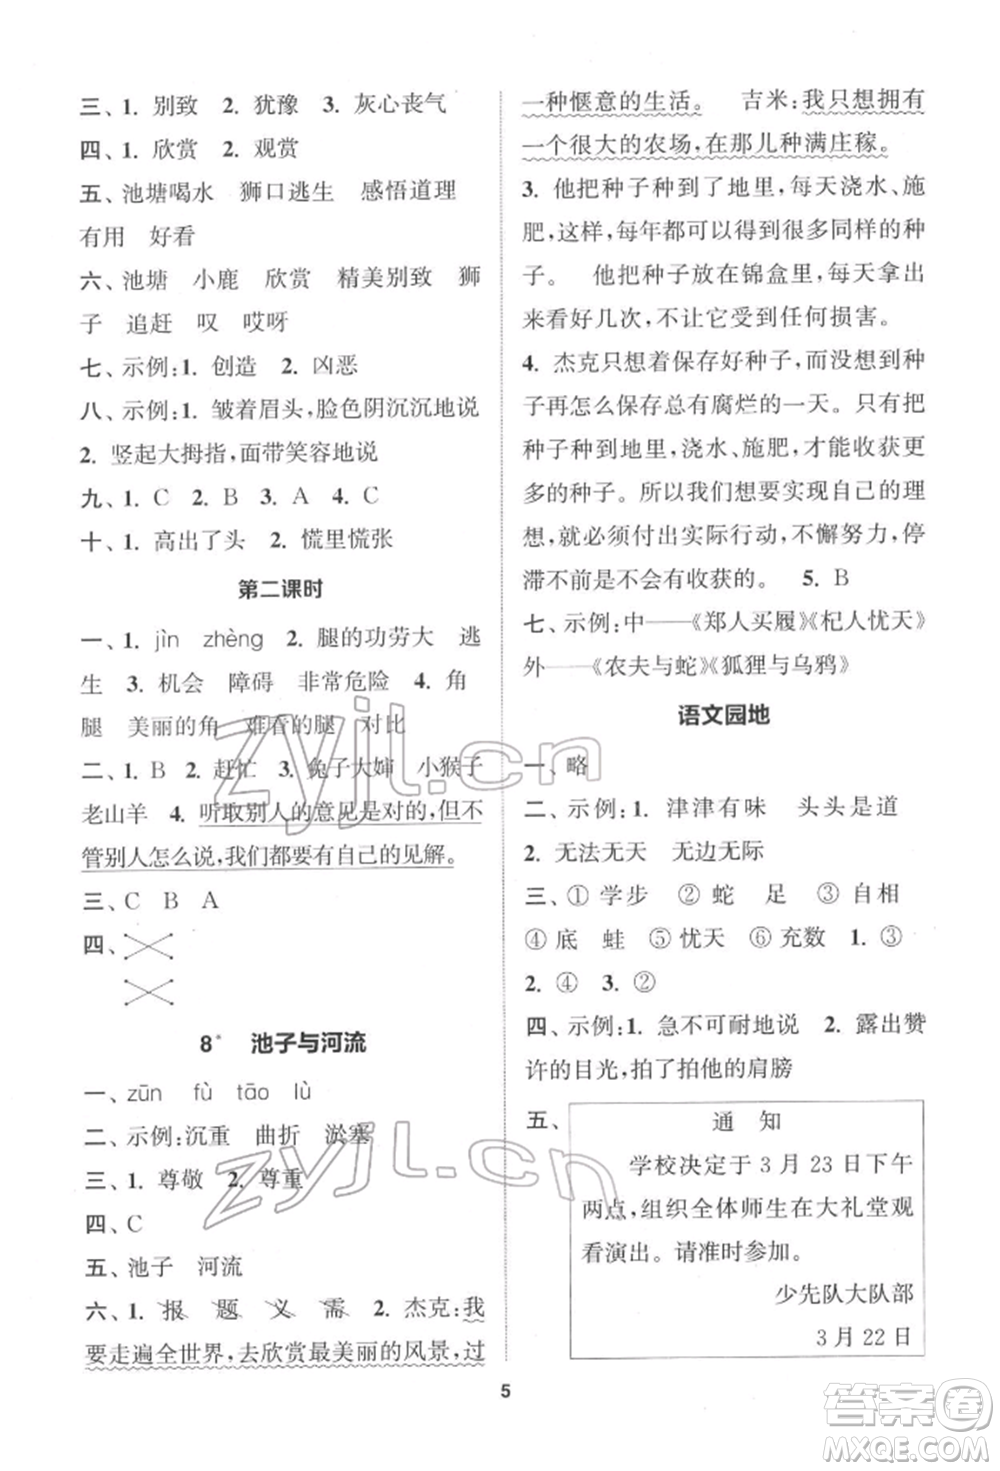 三、1. 别致　2. 犹豫　3. 灰心丧气
四、1. 欣赏　2. 观赏
五、池塘喝水　狮口逃生　感悟道理
有用　好看
六、池塘　小鹿　欣赏　精美别致　狮
子　追赶　叹　哎呀
七、示例:1. 创造　2. 凶恶
八、示例:1. 皱着眉头,脸色阴沉沉地说
2. 竖起大拇指,面带笑容地说
九、1. C　2. B　3. A　4. C
十、1. 高出了头　2. 慌里慌张
第二课时
一、1. jìn　zhèng　2. 腿的功劳大　逃
生　3. 机会　障碍　非常危险　4. 角
腿　美丽的角　难看的腿　对比
二、1. B　2. 赶忙　3. 兔子大婶　小猴子
老山羊　4. 听取别人的意见是对的,但不
管别人怎么说,我们都要有自己的见解。
三、C　B　A
四、
8*　池子与河流
一、zūn　fù　tāo　lù
二、示例:沉重　曲折　淤塞
三、1. 尊敬　2. 尊重
四、C
五、池子　河流
六、1. 报　题　义　需　2. 杰克:我
要走遍全世界,去欣赏最美丽的风景,过
一种惬意的生活。　吉米:我只想拥有
一个很大的农场,在那儿种满庄稼。
3. 他把种子种到了地里,每天浇水、施
肥,这样,每年都可以收获很多同样的种
子。　他把种子放在锦盒里,每天拿出
来看好几次,不让它受到任何损害。
4. 杰克只想着保存好种子,而没想到种
子再怎么保存总有腐烂的一天。只有把
种子种到地里,浇水、施肥,才能收获更
多的种子。所以我们想要实现自己的理
想,就必须付出实际行动,不懈努力,停
滞不前是不会有收获的。　5. B
七、示例:中——《郑人买履》《杞人忧天》
外——《农夫与蛇》《狐狸与乌鸦》
语文园地
一、略
二、示例:1. 津津有味　头头是道
2. 无法无天　无边无际
三、①学步　②蛇　足　③自相
④底　蛙　⑤忧天　⑥充数　1. ③
2. ④　3. ②
四、示例:1. 急不可耐地说　2. 露出赞
许的目光,拍了拍他的肩膀
五、
通　知
学校决定于3月23日下午
两点,组织全体师生在大礼堂观
看演出。请准时参加。
少先队大队部
3月22日
5
zyjl.cn
zyjl.cn
答案圈
MXQE.COM